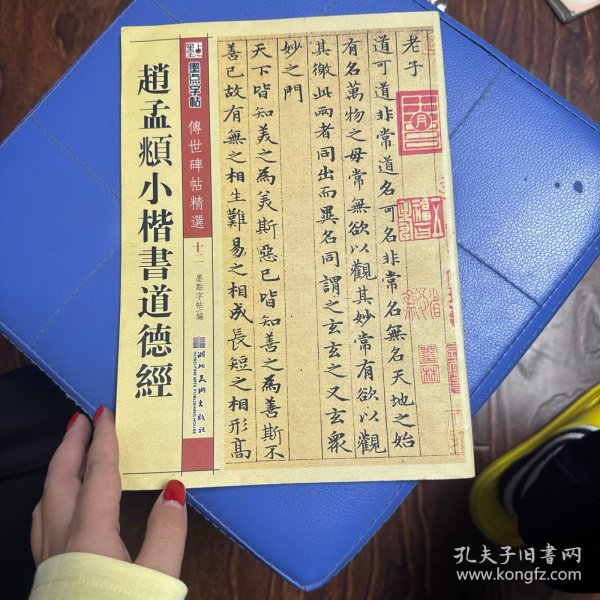 趙孟頫小楷書道德經
墨点字帖
傳世碑帖精選
十二
墨點字帖 編
湖北美術出版社
HUBEI FINE ARTS PUBLISHING HOUSE
老子
道可道非常道名可名非常名無名天地之始
有名萬物之母常無欲以觀其妙常有欲以觀
其徼此兩者同出而異名同謂之玄玄之又玄衆
妙之門
天下皆知美之為美斯惡已皆知善之為善斯不
善已故有無之相生難易之相成長短之相形高
孔夫子旧书网
www.kongfz.com